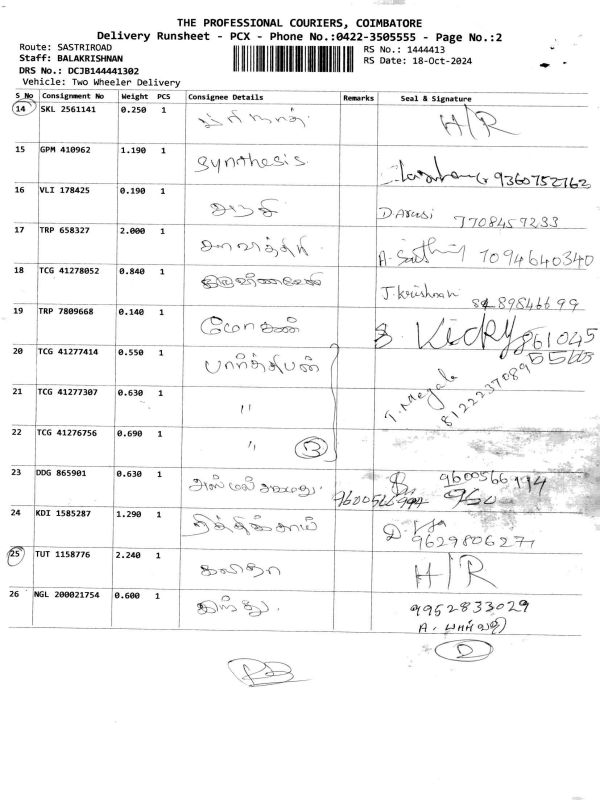 THE PROFESSIONAL COURIERS, COIMBATORE
Delivery Runsheet - PCX - Phone No.:0422-3505555 - Page No.:2
Route: SASTRIROAD
RS No.: 1444413
Staff: BALAKRISHNAN
RS Date: 18-Oct-2024
DRS No.: DCJB144441302
Vehicle: Two Wheeler Delivery
S No Consignment No Weight PCS Consignee Details Remarks Seal & Signature
14 SKL 2561141 0.250 1 H/R
15 GPM 410962 1.190 1 Synthesis 9360752762
16 VLI 178425 0.190 1 D Arasi 7708457233
17 TRP 658327 2.000 1 7094640340
18 TCG 41278052 0.840 1 J. Krishnan
19 TRP 7809668 0.140 1 மோகன் Vicky
20 TCG 41277414 0.550 1 பார்த்திபன்
21 TCG 41277307 0.630 1 " T. Megala 8122237089
22 TCG 41276756 0.690 1 " 3
23 DDG 865901 0.630 1 960
24 KDI 1585287 1.290 1
25 TUT 1158776 2.240 1 கவிதா H/R
26 NGL 200021754 0.600 1 இந்து 9952833029
A. பார்வதி
D